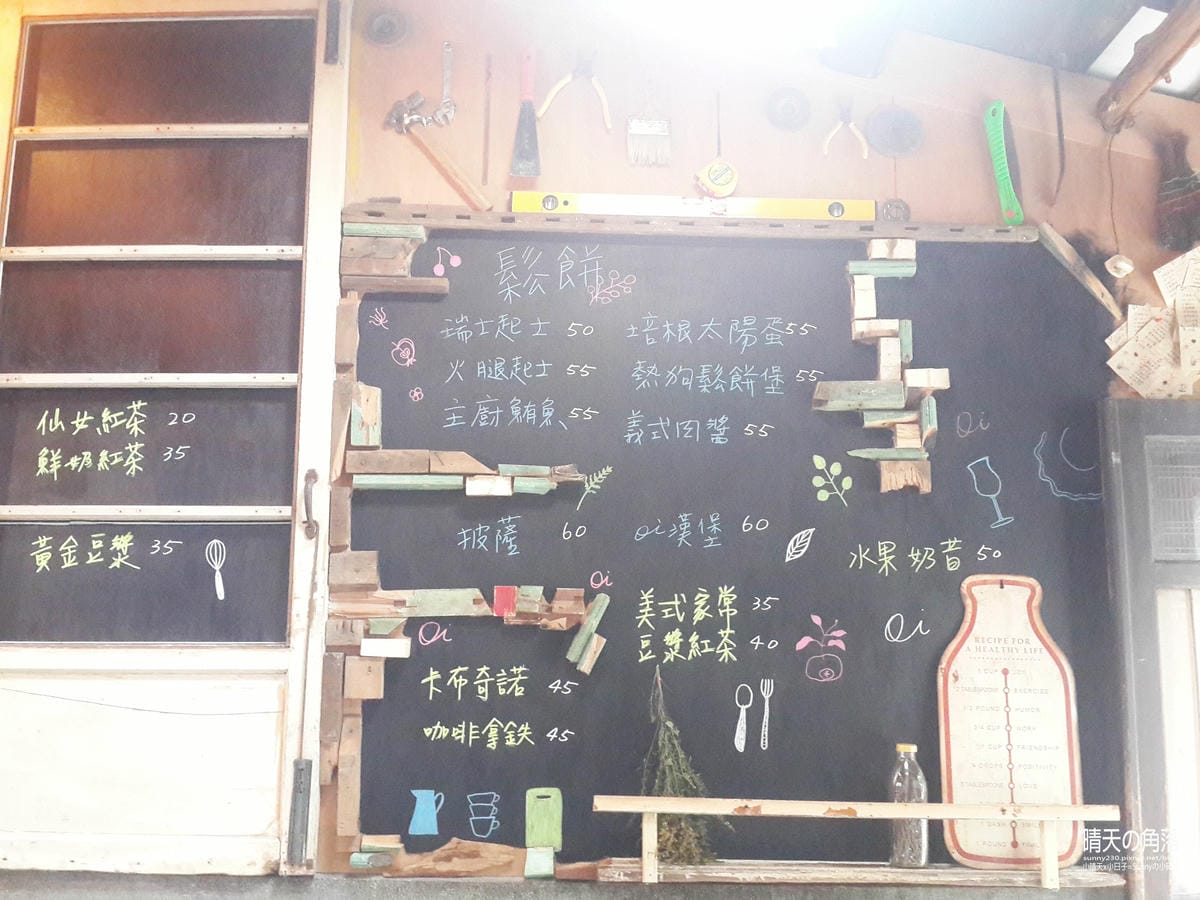 仙女紅茶 20
鮮奶紅茶 35
黃金豆漿 35
鬆餅
瑞士起士 50
火腿起士 55
主廚鮪魚 55
培根太陽蛋 55
熱狗鬆餅堡 55
義式肉醬 55
披薩 60
oi漢堡 60
Oi
水果奶昔 50
Oi
美式家常 35
豆漿紅茶 40
Oi
Oi
卡布奇諾 45
咖啡拿鐵 45
RECIPE FOR
A HEALTHY LIFE
1 CUP JOY
2 TABLESPOONS EXERCISE
1/2 POUND HUMOR
3/4 CUP WORK
CUP FRIENDSHIP
4 DROPS POSITIVITY
TABLESPOONS LOVE
1 DASH
1 POUND
晴天の角落